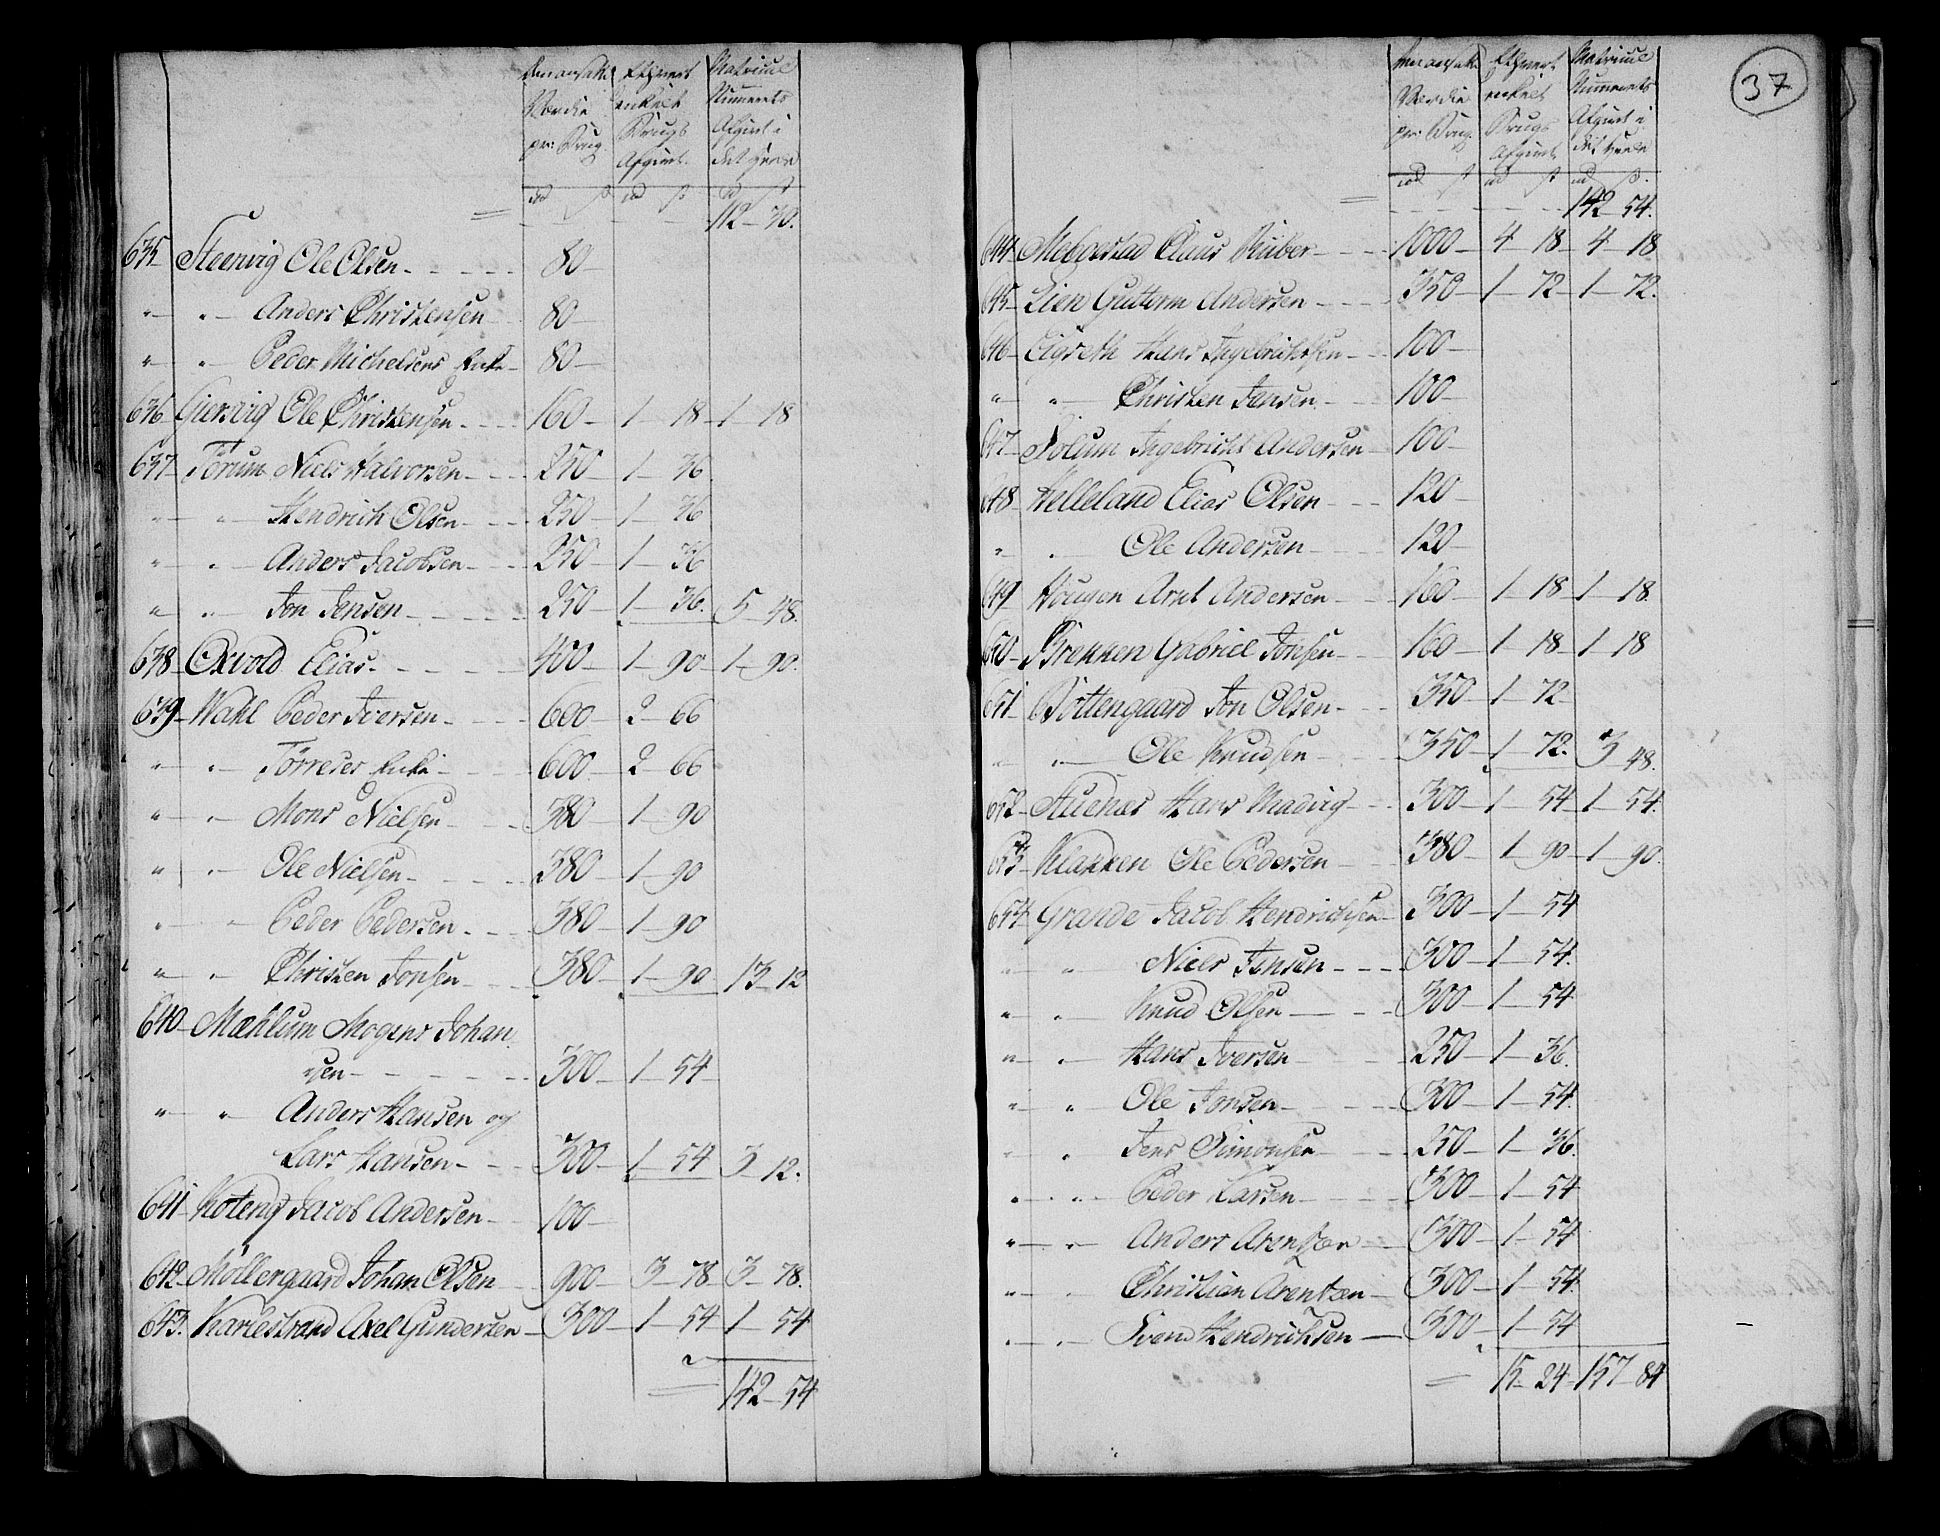 37
Værdie
Afgivt i
pr: Brug.
112 - 70.
635 Steenvig Ole Olsen - 80 -
" " Anders Christensen 80 -
" " Peder Michelsens Enke - 80 -
636 Giersvig Ole Christensen - 160 - 1 - 18 - 1 - 18
637 Forum Niels Halvorsen - 250 - 1 - 36
" " Hendrich Olsen - 250 - 1 - 36
" " Anders Jacobsen - 250 - 1 - 36
" " Jon Jensen - 250 - 1 - 36. 5 - 48.
638 Oxvold Elias - 400 - 1 - 90 - 1 - 90.
639 Wahl Peder Iversen - 600 - 2 - 66
" " Törreses Enke - 600 - 2 - 66
" " Mons Nielsen - 380 - 1 - 90
" " Ole Nielsen - 380 - 1 - 90
" " Peder Pedersen - 380 - 1 - 90
" " Christen Jonsen - 380 - 1 - 90 13 - 12
640 Mæhlum Mogens Johan
sen - 300 - 1 - 54 -
" " Anders Hansen og
Lars Hansen - 300 - 1 - 54 3 - 12.
641 Koteng Jacob Andersen - 100 -
642 Møllergaard Johan Olsen 900 - 3 - 78 3 - 78.
643. Karlestrand Axel Gundersen - 300 - 1 - 54 1 - 54
142 - 54
Værdie
Afgivt i
pr: Brug.
142 - 54.
644 Claus 1000 - 4 - 18 - 4 - 18
645 Lien Guttorm Andersen - 350 - 1 - 72 - 1 - 72.
646 Hans Ingebrichtsen - 100 -
" " Christen Jensen - 100 -
647 Solum Ingebricht Andersen - 100 -
648 Helleland Elias Olsen - 120 -
" " Ole Andersen - 120 -
649 Hougen Arnt Andersen - 160 - 1 - 18 - 1 - 18.
650 Brekken Gabriel Jonsen - 160 - 1 - 18 - 1 - 18
651 Bottengaard Jon Olsen - 350 - 1 - 72 -
" " Ole Knudsen - 350 - 1 - 72. 3 48.
652 Stuenæs Hans Madvig - 300 - 1 - 54 - 1 - 54.
653 Klakken Ole Pedersen - 380 - 1 - 90 - 1 - 90.
654 Grande Jacob Hendrichsen - 300 - 1 - 54
" " Niels Jensen - 300 - 1 - 54.
" " Knud Olsen - 300 - 1 - 54
" " Hans Iversen - 250 - 1 - 36.
" " Ole Jonsen - 300 - 1 - 54.
" " Jens Simonsen - 250 - 1 - 36.
" " Peder Larsen - 300 - 1 - 54
" " Anders Arentzen - 300 - 1 - 54
" " Christian Arentzen - 300 - 1 - 54.
" " Svend Hendrichsen - 300 - 1 - 54
15 - 24 - 157 - 84